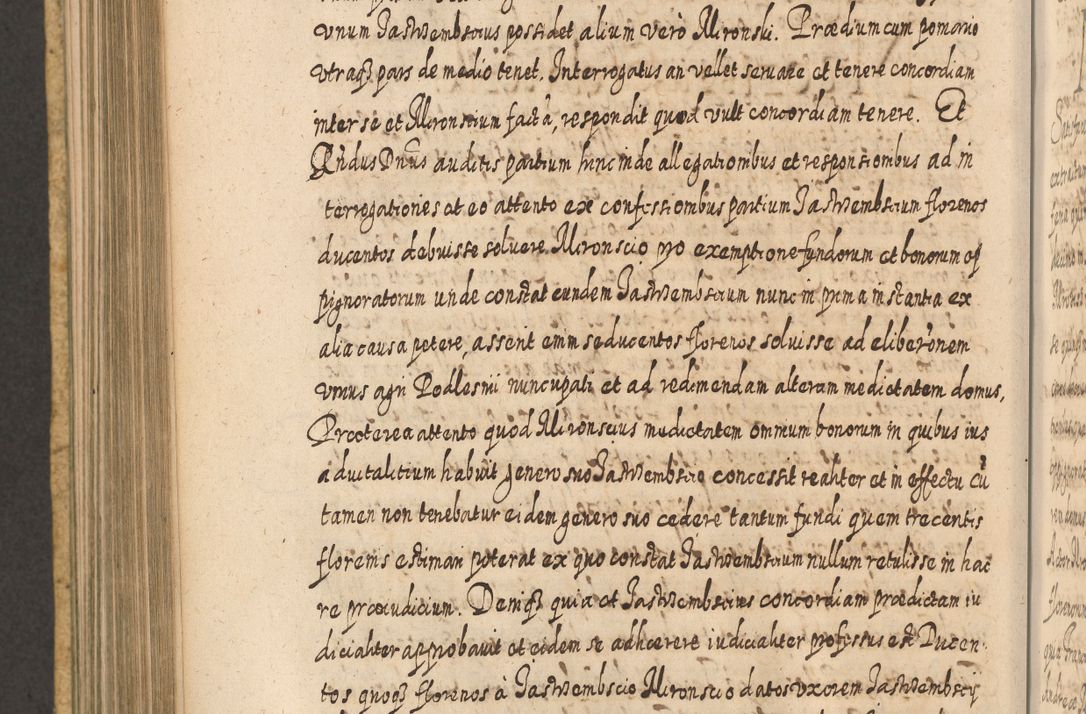 vnum Jastrzembscius possidet alium verò Mironski. Prædium cum pomario
vtraq₃ pars de medio tenet. Interrogatus an vellet seruare et tenere concordiam
inter se et Mironscium facta, respondit quod vult concordiam tenere. Et
Rndus Dnus auditis partium hinc inde allegationibus et responsionibus ad in
terrogationes at eo attento ex confessionibus partium Jastrzembscium florenos
ducentos debuisse soluere Mironscio pro exemptione fundorum et bonorum op
pignoratorum unde constat eundem Jastrzembscium nunc in prima instantia ex
alia causa petere, asserit enim se ducentos florenos soluisse ad eliberonem
vnius agri Podlesni nuncupati et ad redimendam alteram medietatem domus,
Præterea attento quod Mironscius medietatem omnium bonorum in quibus ius
aduitalitium habuit genero suo Jastrzembscio concessit realiter et in effectu cū
tamen non tenebatur eidem genero suo cedere tantum fundi quem trecentis
florenis estimari poterat ex quo constat Jastrzembscium nullum retulisse in hac
re præiudicium. Deniq₃ quia et Jastrzembscius concordiam prædictam iu
dicialiter approbauit et eidem se adhærere iudicialiter professus est Ducen-
tos quoq₃ florenos à Jastrzembscio Mironscio datos vxorem Jastrzembscij